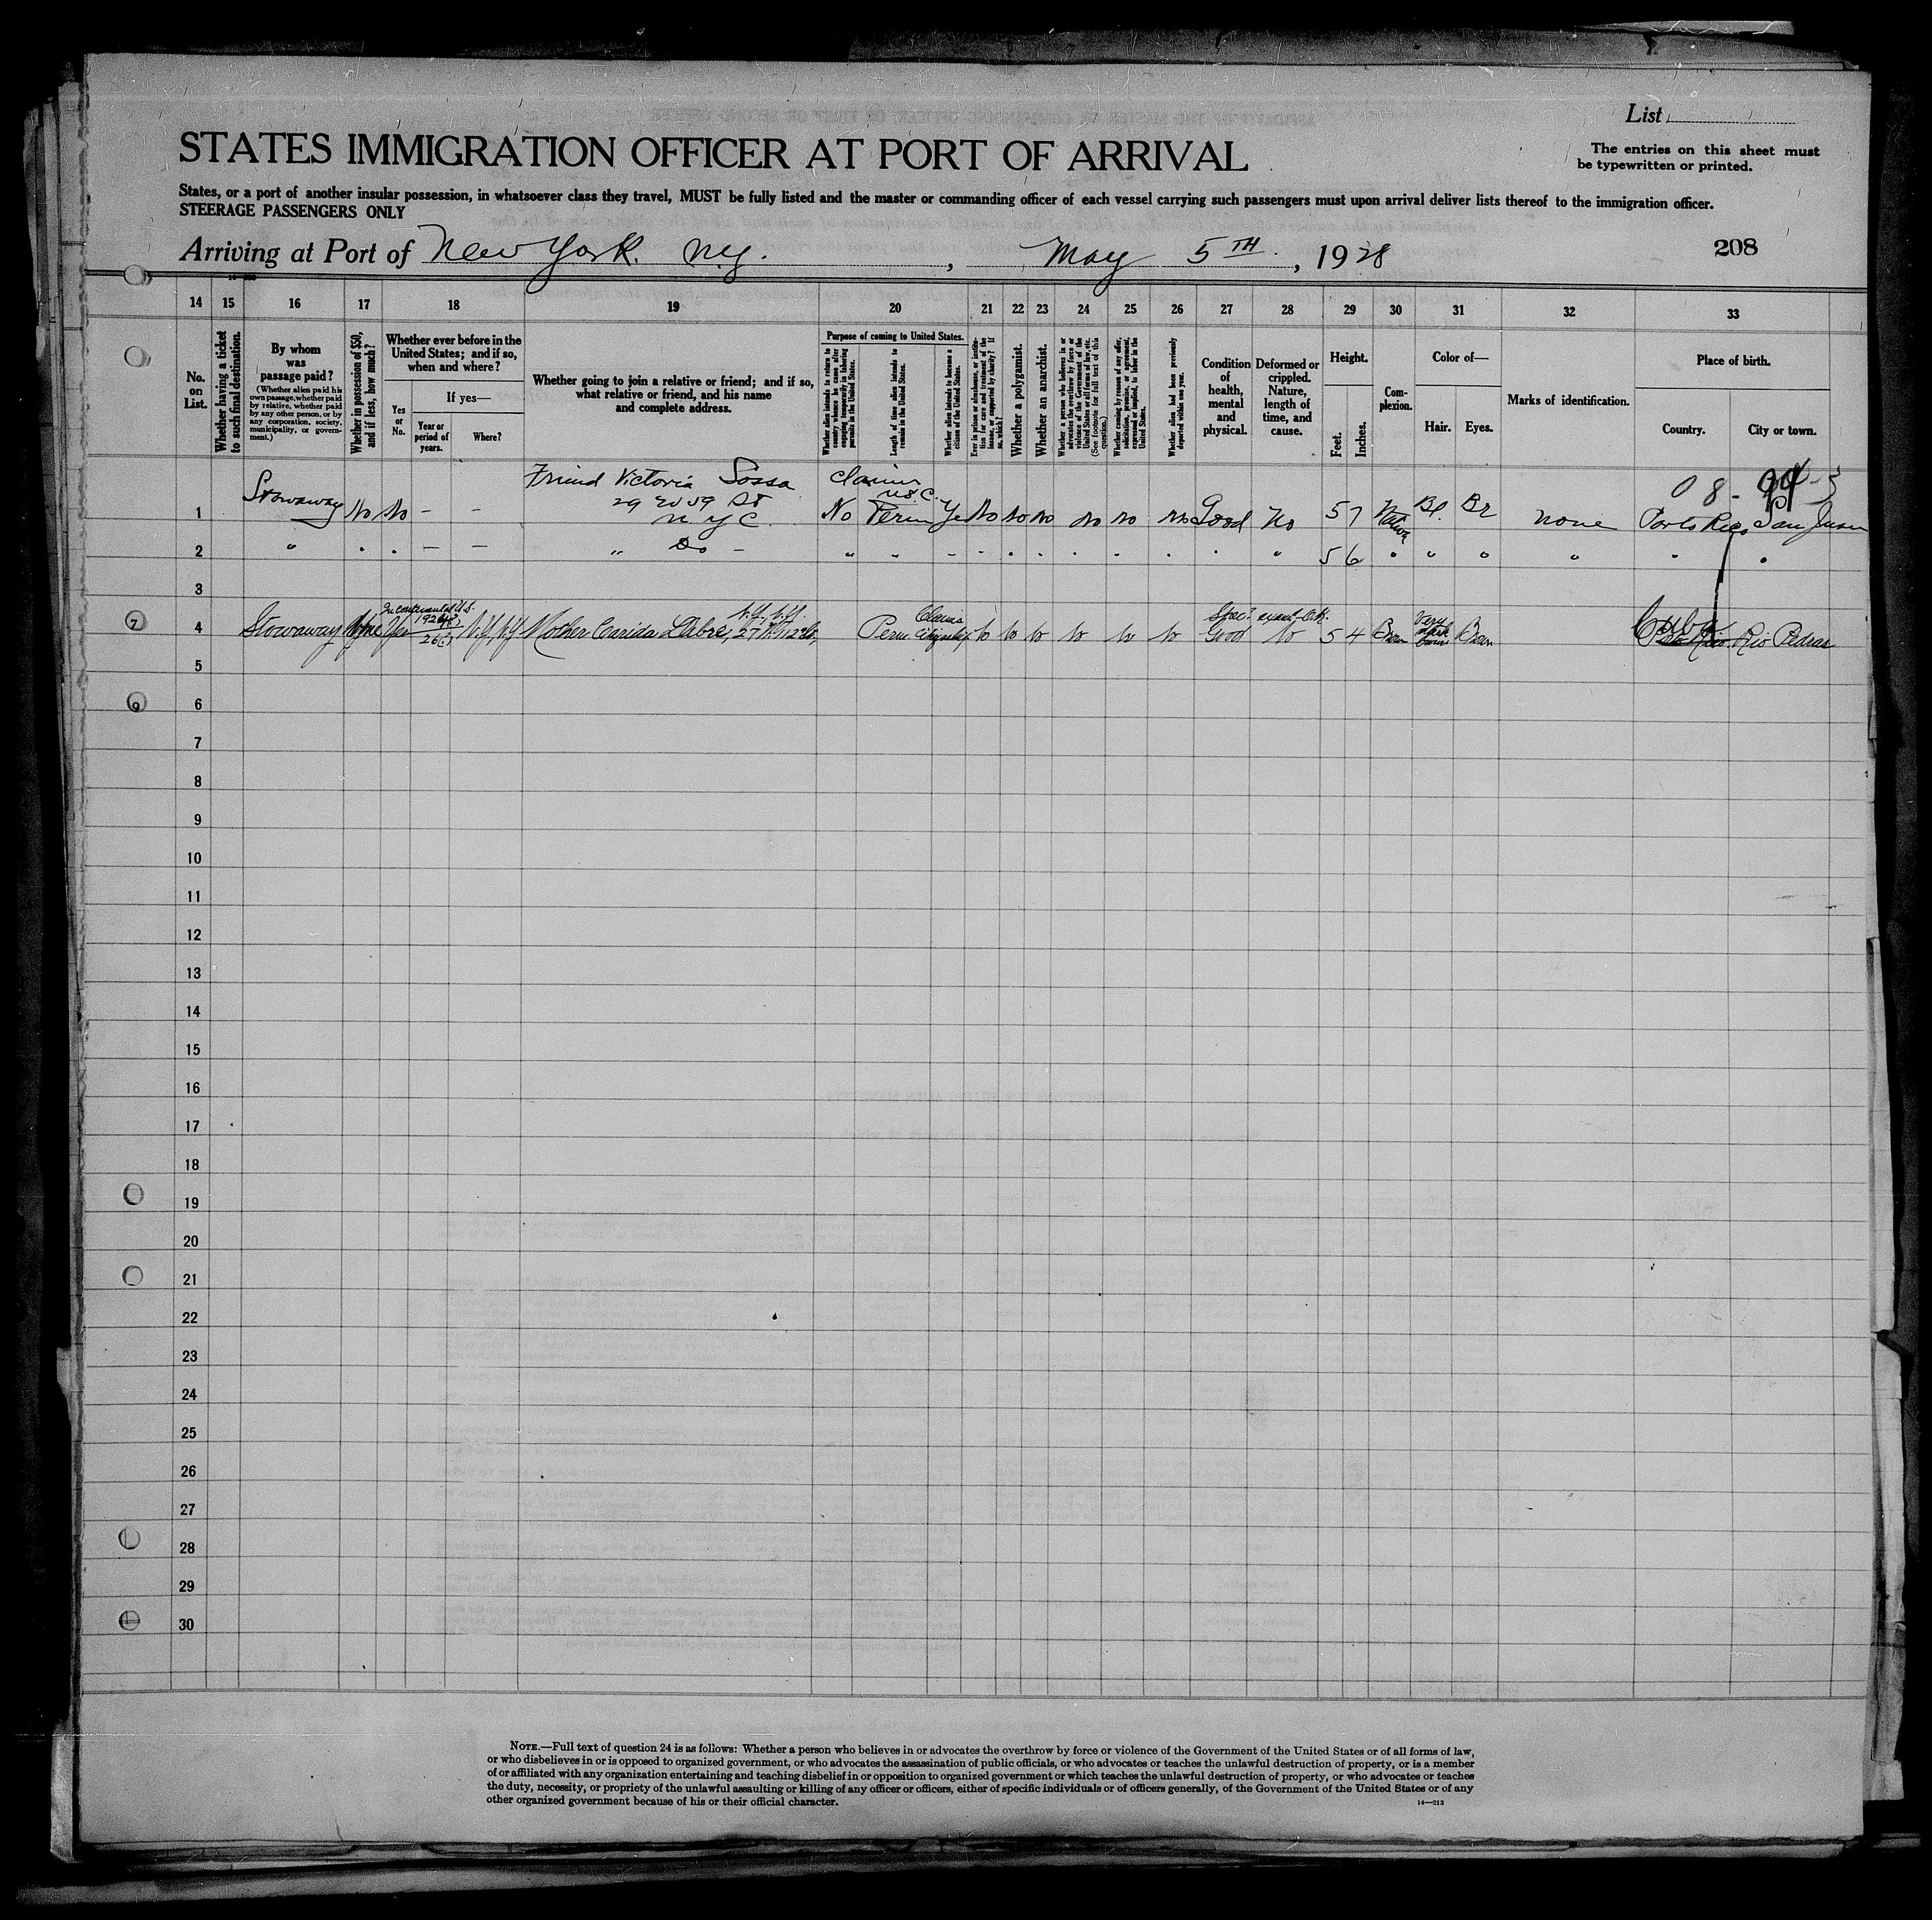 List
STATES IMMIGRATION OFFICER AT PORT OF ARRIVAL
The entries on this sheet must
be typewritten or printed.
States, or a port of another insular possession, in whatsoever class they travel, MUST be fully listed and the master or commanding officer of each vessel carrying such passengers must upon arrival deliver lists thereof to the immigration officer.
STEERAGE PASSENGERS ONLY
Arriving at Port of New York. N.Y. , May 5TH , 1928
208
14 15 16 17 18 19 20 21 22 23 24 25 26 27 28 29 30 31 32 33
No. on List.
Whether having a ticket to such final destination.
By whom was passage paid?
(Whether alien paid his own passage, whether paid by relative, whether paid by any other person, or by any corporation, society, municipality, or government.)
Whether in possession of $50, and if less, how much?
Whether ever before in the United States; and if so, when and where?
If yes—
Yes or No.
Year or period of years.
Where?
Whether going to join a relative or friend; and if so, what relative or friend, and his name and complete address.
Purpose of coming to United States.
Whether alien intends to return to country whence he came after engaging temporarily in laboring pursuits in the United States.
Length of time alien intends to remain in the United States.
Whether alien intends to become a citizen of the United States.
Ever in prison or almshouse, or institution for care and treatment of the insane, or supported by charity? If so, which?
Whether a polygamist.
Whether an anarchist.
Whether a person who believes in or advocates the overthrow by force or violence of the Government of the United States or all forms of law, etc. (See footnote for full text of this question.)
Whether coming by reason of any offer, solicitation, promise, or agreement, expressed or implied, to labor in the United States.
Whether alien had been previously deported within one year.
Condition of health, mental and physical.
Deformed or crippled. Nature, length of time, and cause.
Height.
Feet.
Inches.
Complexion.
Color of—
Hair.
Eyes.
Marks of identification.
Place of birth.
Country.
City or town.
Friend Victoria Sossa claims
29 W 59 St U.S.C. 08-
1 Stowaway No No – – N Y C. No Perm Yes No No No No No No Good No 5 7 Bl. Br none Porto Rico San Juan
2 " . . – – " Do – " " 5 6 " " " "
3
In continental U.S. N.Y. N.Y. Claims Spec. exam. O.K. Very
4 Stowaway Yes N.Y. N.Y. Mother Carida 27 Perm Citizenship No No No No No No Good No 5 4 Brown dark brown Brown Cuba Porto Rico Rio Pedras
5
6
7
8
9
10
11
12
13
14
15
16
17
18
19
20
21
22
23
24
25
26
27
28
29
30
NOTE.—Full text of question 24 is as follows: Whether a person who believes in or advocates the overthrow by force or violence of the Government of the United States or of all forms of law,
or who disbelieves in or is opposed to organized government, or who advocates the assassination of public officials, or who advocates or teaches the unlawful destruction of property, or is a member
of or affiliated with any organization entertaining and teaching disbelief in or opposition to organized government or which teaches the unlawful destruction of property, or who advocates or teaches
the duty, necessity, or propriety of the unlawful assaulting or killing of any officer or officers, either of specific individuals or of officers generally, of the Government of the United States or of any
other organized government because of his or their official character.
14—213